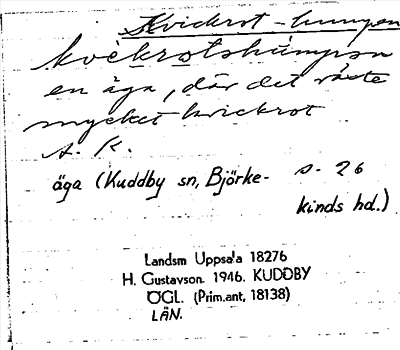 Kvickrot-humpen
kvèkrotshùmpen
en äga, där det växte
mycket kvickrot
A. K. s. 26
äga (Kuddby sn, Björke-
kinds hd.)
Landsm Uppsala 18276
H. Gustavson. 1946. KUDDBY
ÖGL. (Prim.ant, 18138)
LÄN.